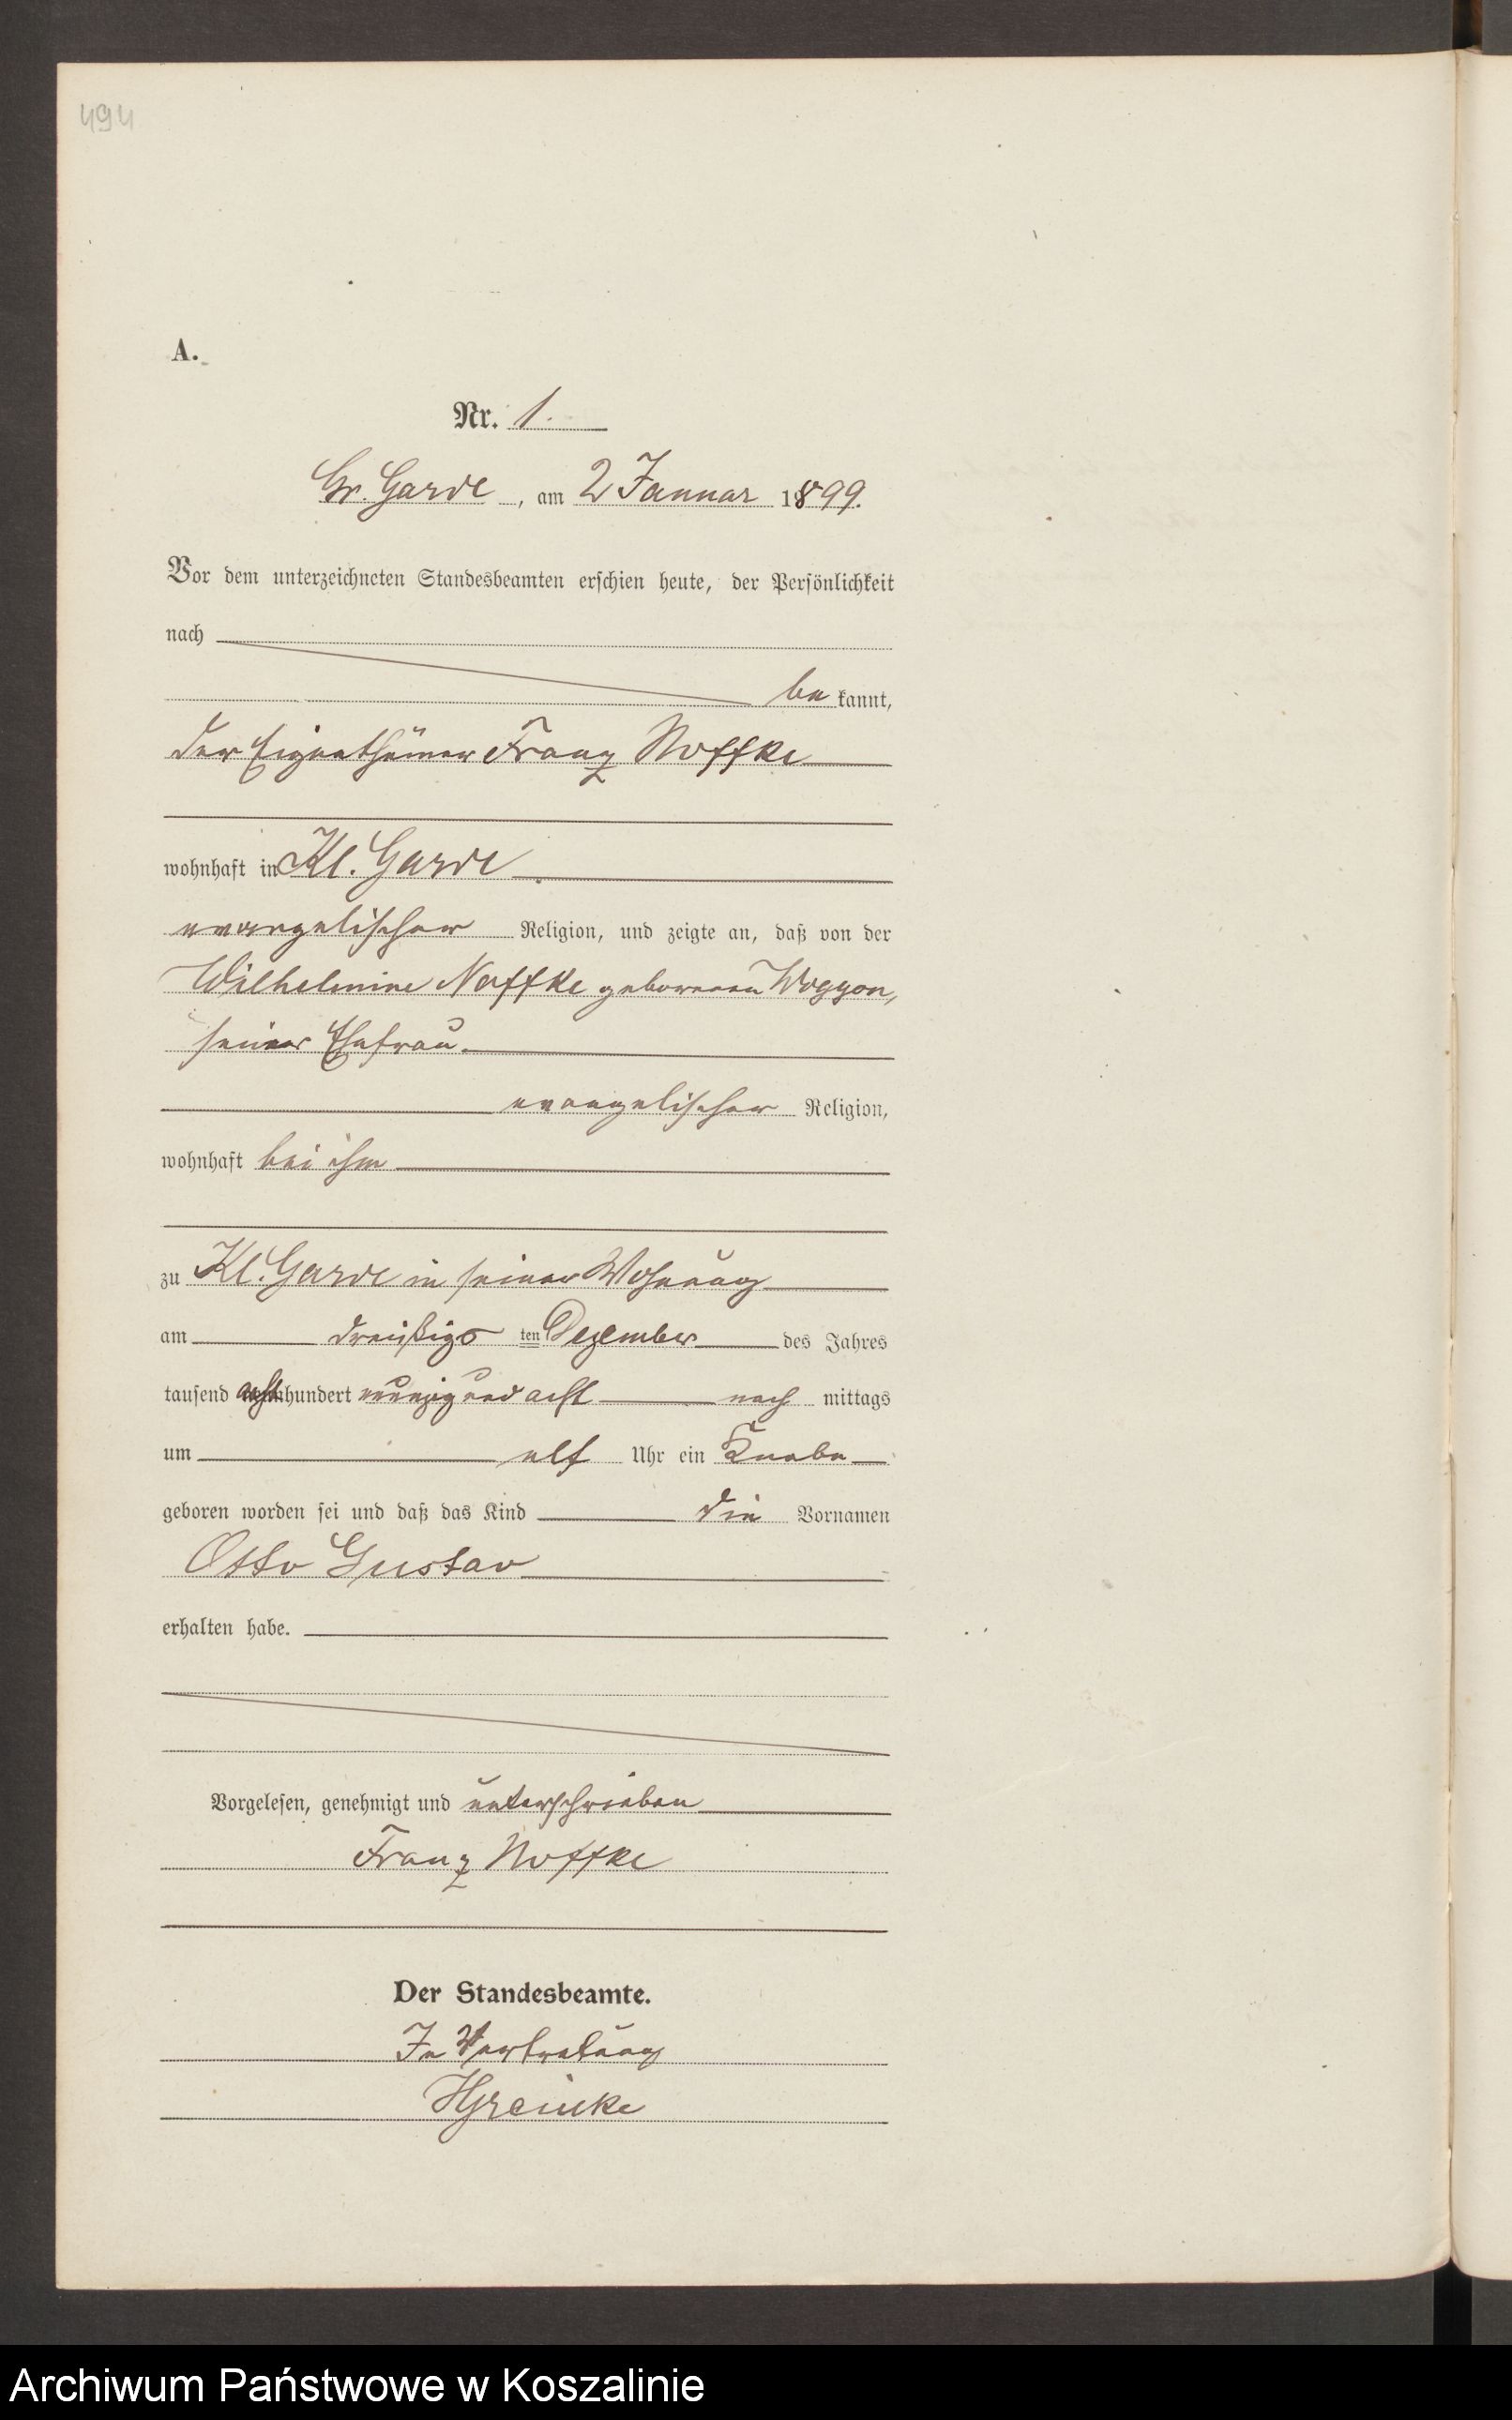 494
A.
Nr. 1.
Gr. Garde, am 2 Januar 1899.
Vor dem unterzeichneten Standesbeamten erschien heute, der Persönlichkeit
nach
be kannt,
der Eigenthümer Franz Noffke
wohnhaft in Kl. Garde
evangelischer Religion, und zeigte an, daß von der
Wilhelmine Noffke geborenen Woggon,
seiner Ehefrau
evangelischer Religion,
wohnhaft bei ihm
zu Kl. Garde in seiner Wohnung
am dreißigs ten Dezember des Jahres
tausend achthundert neunzig und acht nach mittags
um elf Uhr ein Knabe
geboren worden sei und daß das Kind die Vornamen
Otto Gustav
erhalten habe.
Vorgelesen, genehmigt und unterschrieben
Franz Noffke
Der Standesbeamte.
In Vertretung
Archiwum Państwowe w Koszalinie